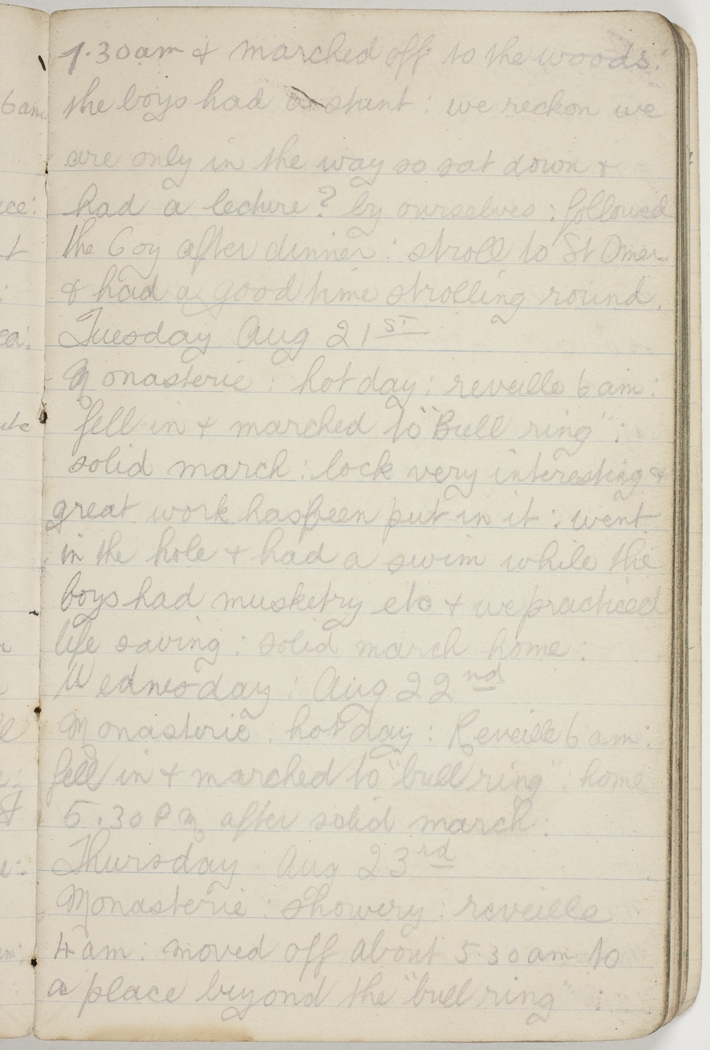 7.30am & marched off to the woods:
the boys had a stunt: we reckon we
are only in the way so sat down &
had a lecture? by ourselves: followed
the Coy after dinner: stroll to St Omer
& had a good time strolling round.
Tuesday Aug 21ST
Monasterie: hot day: reveille 6am:
fell in & marched to "Bull ring":
solid march: lock very interesting &
great work has been put in it: went
in the hole & had a swim while the
boys had musketry etc & we practiced
life saving: solid march home:
Wednesday: Aug 22nd
Monasterie. hot day: Reveille 6am:
fell in & marched to "bull ring": home
5.30PM after solid march:
Thursday Aug 23rd
Monasterie: showery: reveille
4am: moved off about 5.30am to
a place beyond the "bull ring":